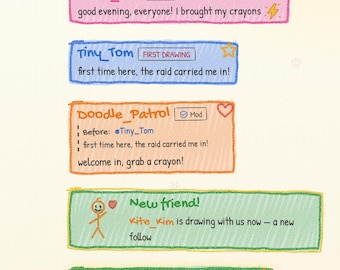 good evening, everyone! I brought my crayons
Tiny_Tom FIRST DRAWING
first time here, the raid carried me in!
Doodle_Patrol Mod
Before: @Tiny_Tom
first time here, the raid carried me in!
welcome in, grab a crayon!
New friend!
Kite_Kim is drawing with us now — a new
follow